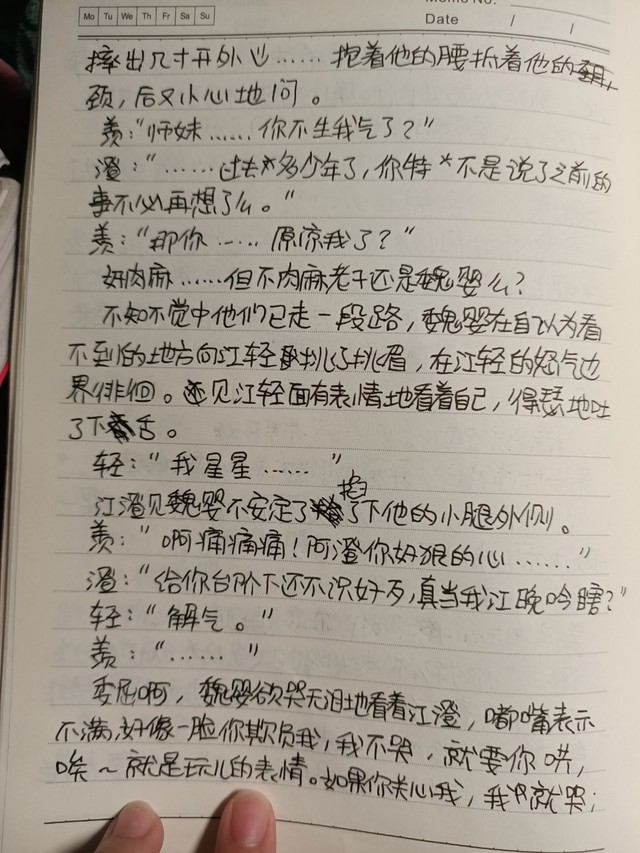 Memo No.
Mo Tu We Th Fr Sa Su
Date / /
摔出几寸开外心……抱着他的腰抵着他的
颈，后又小心地问。
羡："师妹……你不生我气了？"
澄："……过去多少年了，你特*不是说了之前的
事不必再想了么。"
羡："那你……原谅我了？"
好肉麻……但不肉麻老子还是魏婴么？
不知不觉中他们已走一段路，魏婴在自以为看
不到的地方向江轻挑了挑眉，在江轻的怒气边
界徘徊。还见江轻面有表情地看着自己，得瑟地吐
了下舌。
轻："我星星……"
江澄见魏婴不安定了掐了下他的小腿外侧。
羡："啊痛痛痛！阿澄你好狠的心……"
澄："给你台阶下还不识好歹，真当我江晚吟瞎？"
轻："解气。"
羡："……"
委屈啊，魏婴欲哭无泪地看着江澄，嘟嘴表示
不满，好像一脸你欺负我，我不哭，就要你哄，
唉～就是玩儿的表情。如果你关心我，我就哭；